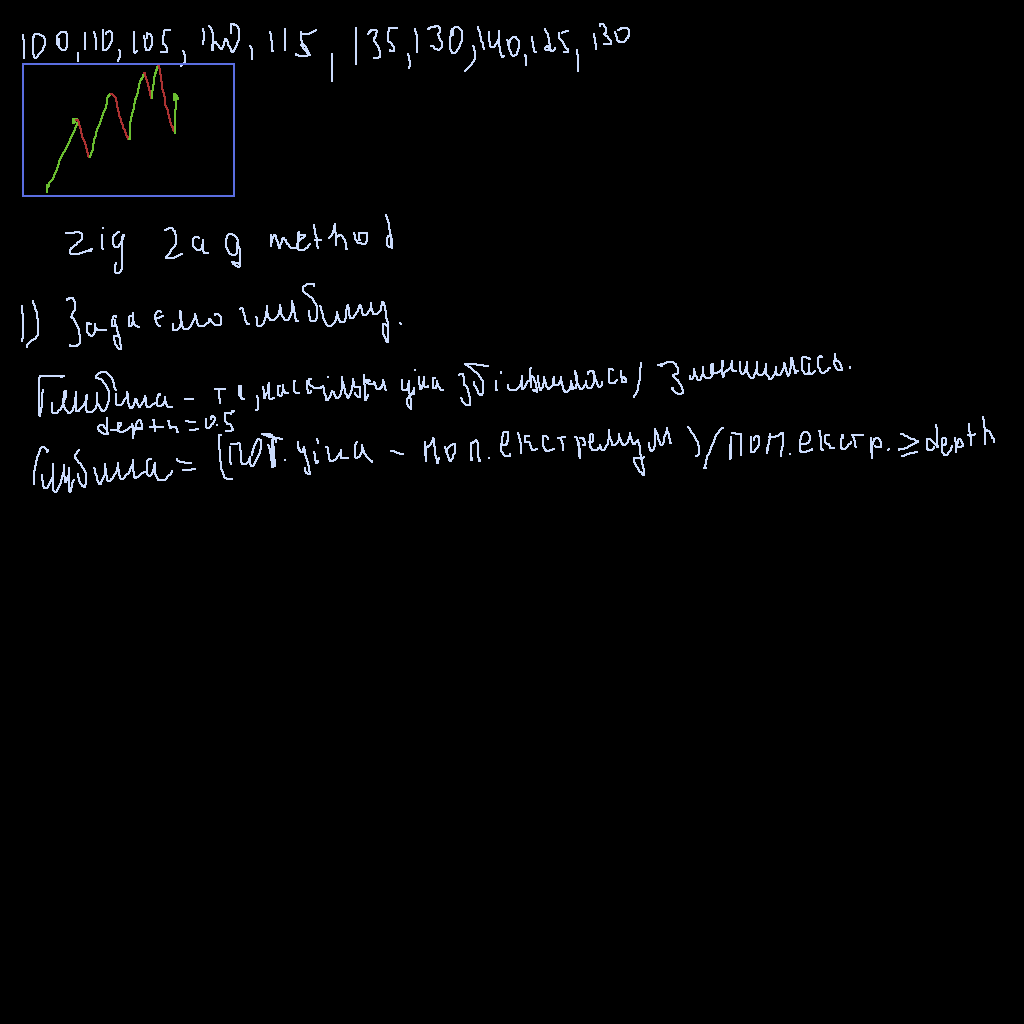 100, 110, 105, 120, 115, 135, 130, 140, 125, 130
zig zag method
1) Задаємо глибину.
Глибина - те, наскільки ціна збільшилась/зменшилась.
depth = 0.5
Глибина = (пот. ціна - поп. екстремум)/поп. екстр. ≥ depth